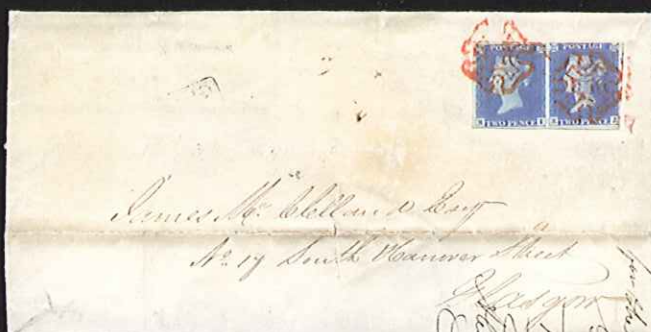 POSTAGE POSTAGE
TWO PENCE TWO PENCE
James McClelland Esq
No 17 South Hanover Street
Glasgow